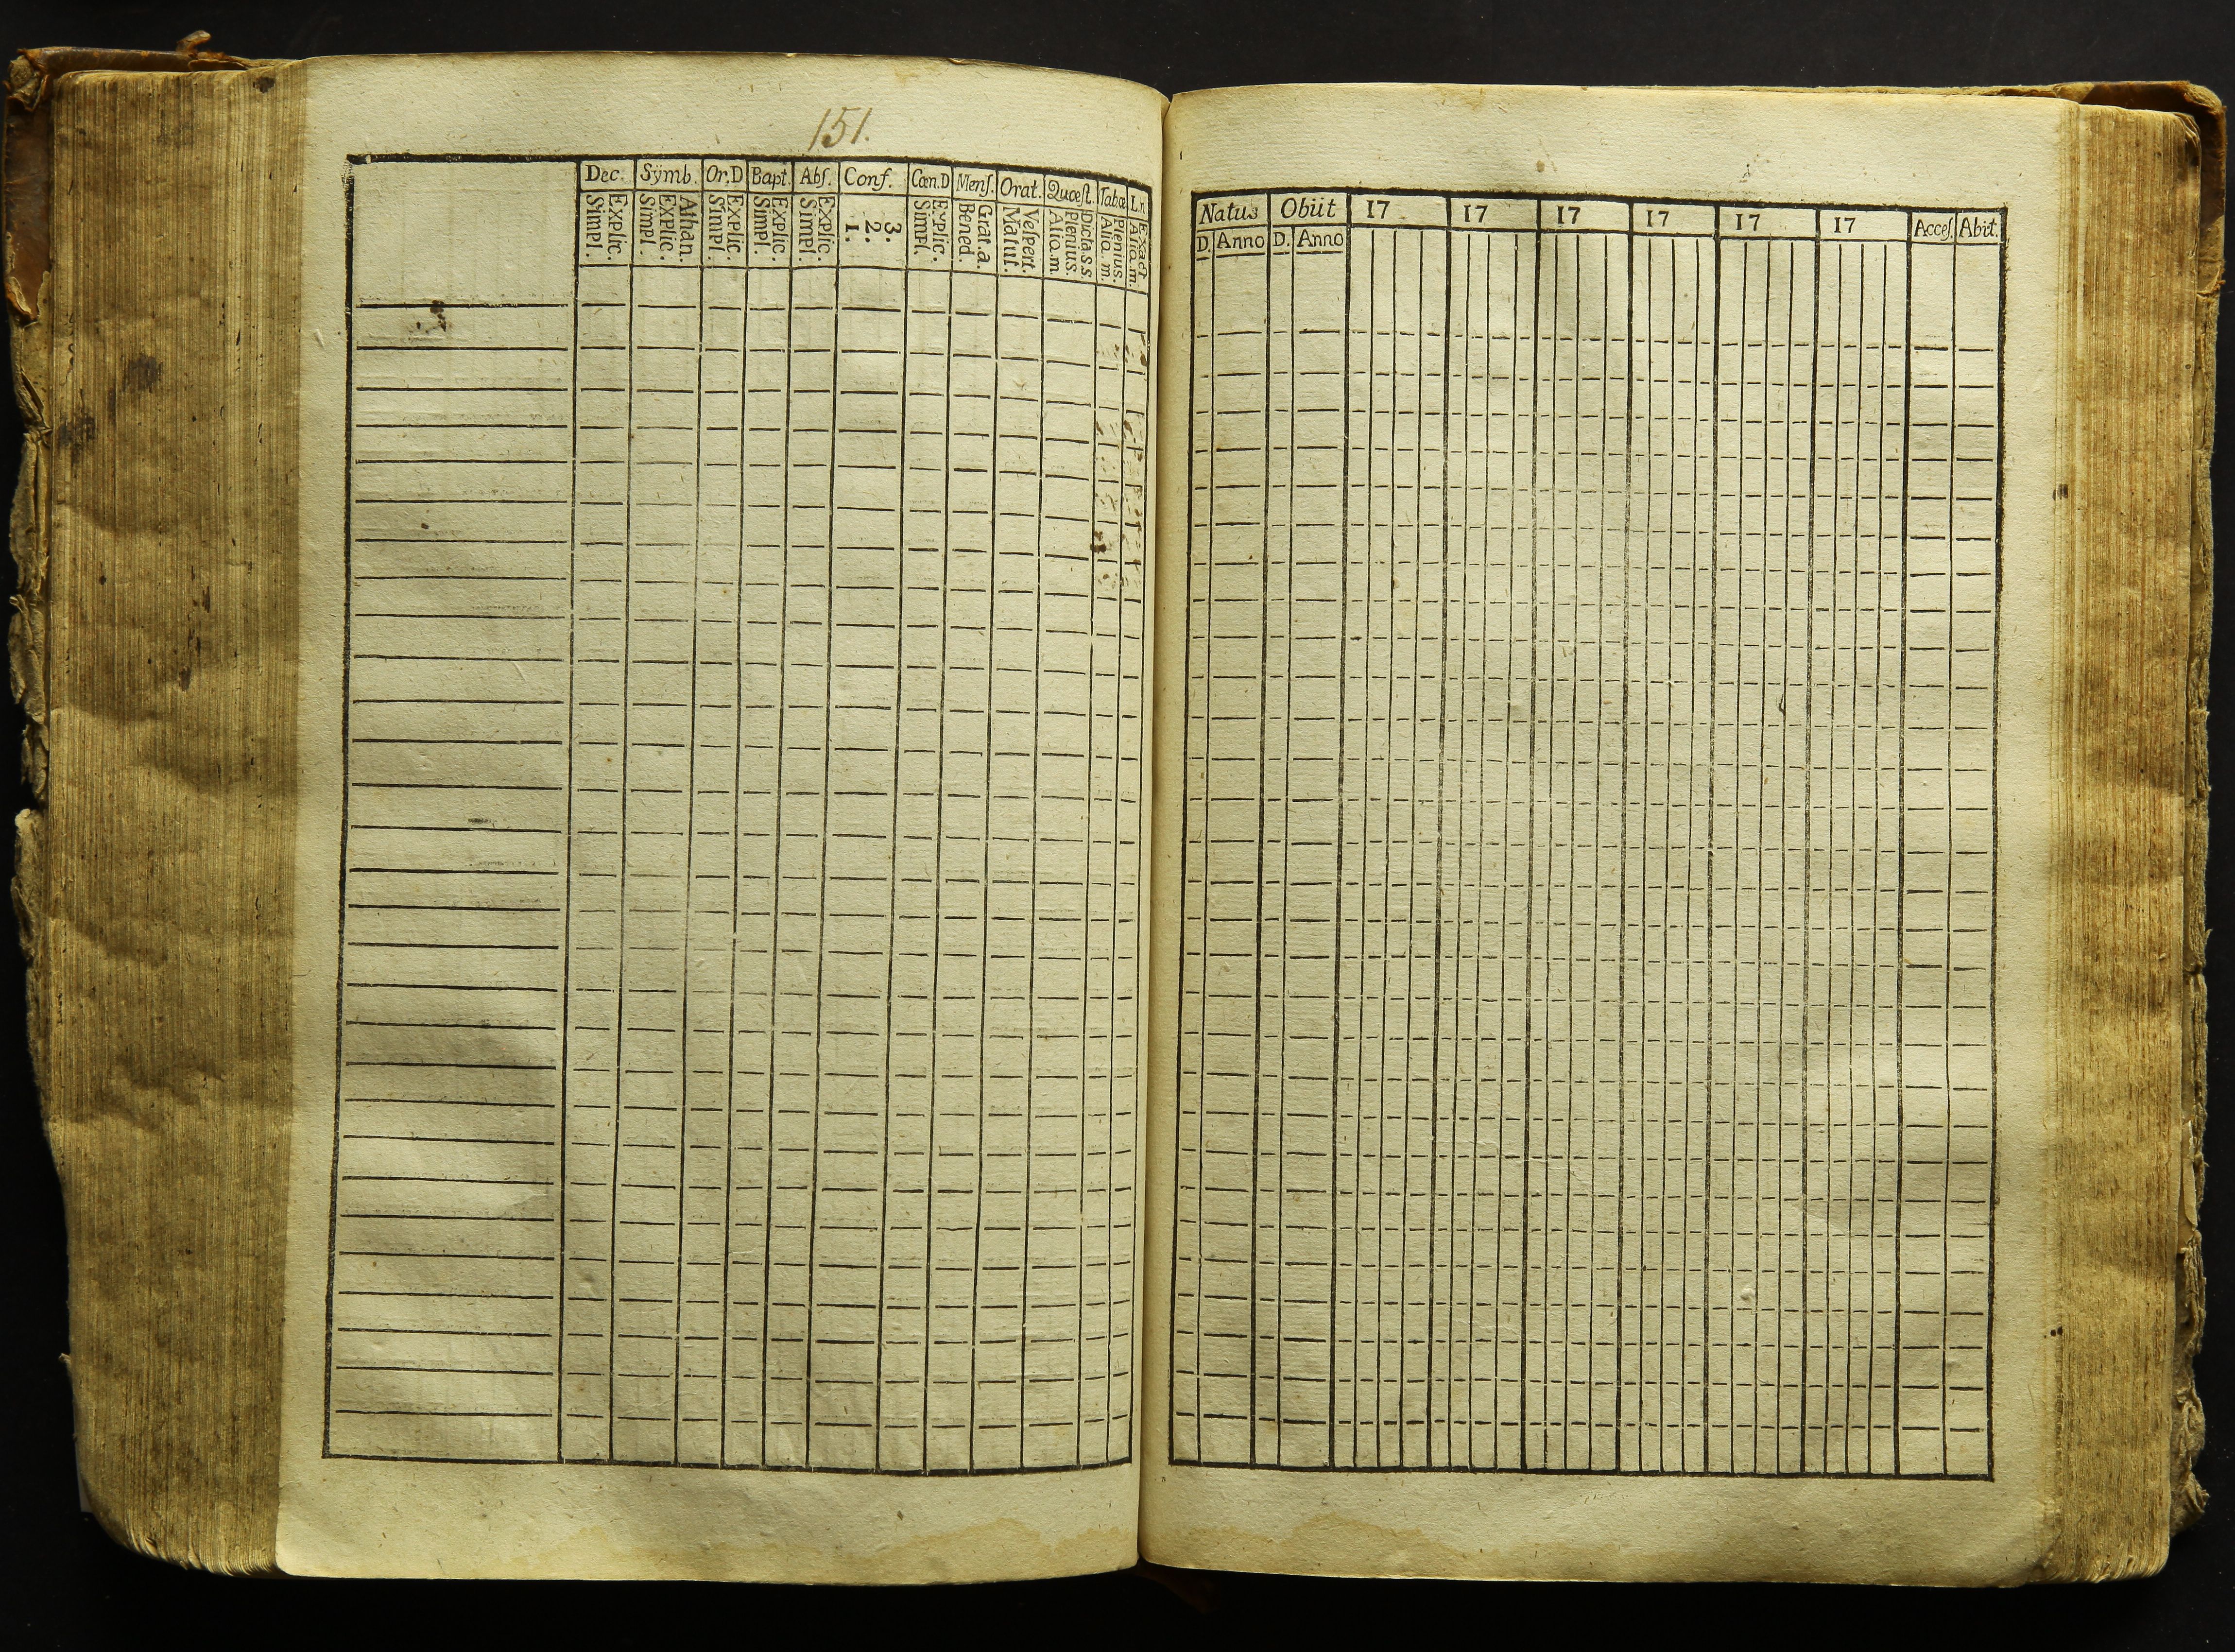 151.
Dec. Sÿmb. Or.D Bapt. Abſ. Conf. Cœn.D Menſ. Orat. Quœſt. Tabœ L.n
Simpl. Explic. Simpl. Explic. Athan. Simpl. Explic. Simpl. Explic. Simpl. Explic. 1. 2. 3. Simpl. Explic. Bened. Grat.a. Matut. Veſpert. Alio.m. Plenius. Dicta.s.s. Alio. m. Plenius. Alio.m. Exact
Natus Obiit 17 17 17 17 17 17 Acceſ. Abit.
D. Anno D. Anno